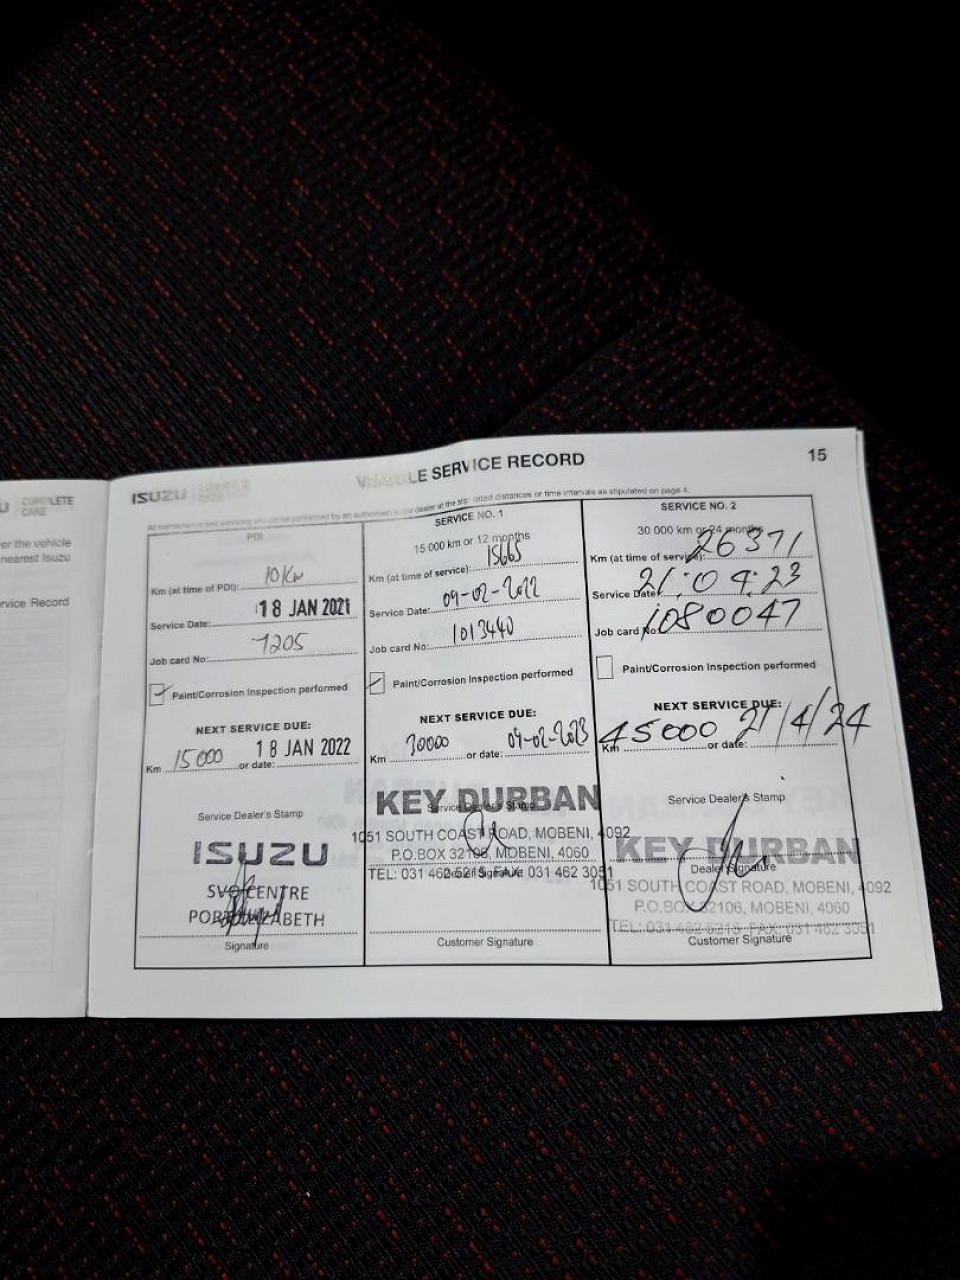 COMPLETE
CARE
er the vehicle
nearest Isuzu
rvice Record
ISUZU
LE SERVICE RECORD
15
PDI
Km (at time of PDI): 10 Km
Service Date: 18 JAN 2021
Job card No: 7205
Paint/Corrosion Inspection performed
NEXT SERVICE DUE:
Km 15000 or date: 18 JAN 2022
Service Dealer's Stamp
ISUZU
SVC CENTRE
PORT ELIZABETH
Signature
SERVICE NO. 1
15 000 km or 12 months
Km (at time of service): 15665
Service Date: 09-02-2022
Job card No: 1013440
Paint/Corrosion Inspection performed
NEXT SERVICE DUE:
Km 30000 or date: 09-02-2023
Service Dealer's Stamp
KEY DURBAN
1051 SOUTH COAST ROAD, MOBENI, 4092
P.O.BOX 32106, MOBENI, 4060
TEL: 031 462 5215 FAX: 031 462 3051
Dealer Signature
Customer Signature
SERVICE NO. 2
30 000 km or 24 months
Km (at time of service): 26371
Service Date: 21:04:23
Job card No: 1080047
Paint/Corrosion Inspection performed
NEXT SERVICE DUE:
Km 45000 or date: 21/4/24
Service Dealer's Stamp
KEY DURBAN
Dealer Signature
1051 SOUTH COAST ROAD, MOBENI, 4092
P.O.BOX 32106, MOBENI, 4060
TEL: 031 462 5215 FAX: 031 462 3051
Customer Signature